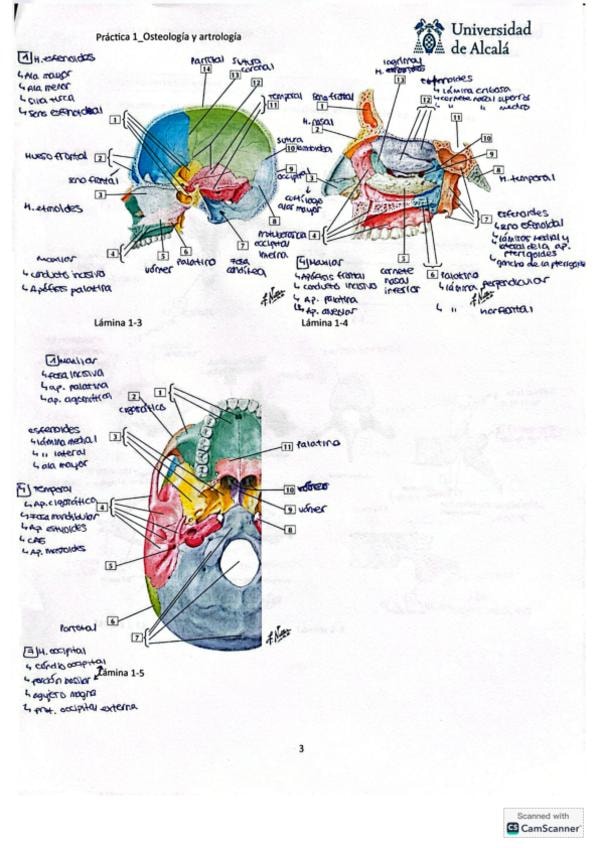 Práctica 1_Osteología y artrología
Universidad
de Alcalá
1 H. esfenoides
↳ Ala mayor
↳ Ala menor
↳ Silla turca
↳ Seno esfenoidal
1
2 Hueso frontal
seno frontal
3
H. etmoides
4
Maxilar
↳ conducto incisivo
↳ Apófisis palatina
5
vómer
6
palatino
7
Fosa
condílea
8
Protuberancia
occipital
interna
9
occipital
10
sutura
lambdoidea
11
Temporal
12
13
sutura
coronal
14
Parietal
Lámina 1-3
1
seno frontal
2
H. nasal
3
cartílago
alar mayor
4
4 Maxilar
↳ Apófisis frontal
↳ conducto incisivo
↳ Ap. palatina
↳ Ap. alveolar
5
cornete
nasal
inferior
6 Palatino
↳ lámina perpendicular
↳ " horizontal
7
esfenoides
↳ seno esfenoidal
↳ láminas medial y
lateral de la ap.
pterigoides
↳ gancho de la pterigoides
8
H. temporal
9
10
11
12
etmoides
↳ lámina cribosa
↳ cornete nasal superior
↳ " " medio
13
lagrimal
Lámina 1-4
1 Maxilar
↳ Fosa incisiva
↳ ap. palatina
↳ ap. cigomática
1
2
cigomático
3
esfenoides
↳ lámina medial
↳ " lateral
↳ ala mayor
4 Temporal
↳ Ap. cigomático
↳ Fosa mandibular
↳ Ap estiloides
↳ CAE
↳ Ap. mastoides
4
5
6
Parietal
7
8
9 vómer
10
11 Palatino
H. occipital
↳ cóndilo occipital
↳ porción basilar
↳ agujero magno
↳ prot. occipital externa
Lámina 1-5
3
Scanned with
CS CamScanner